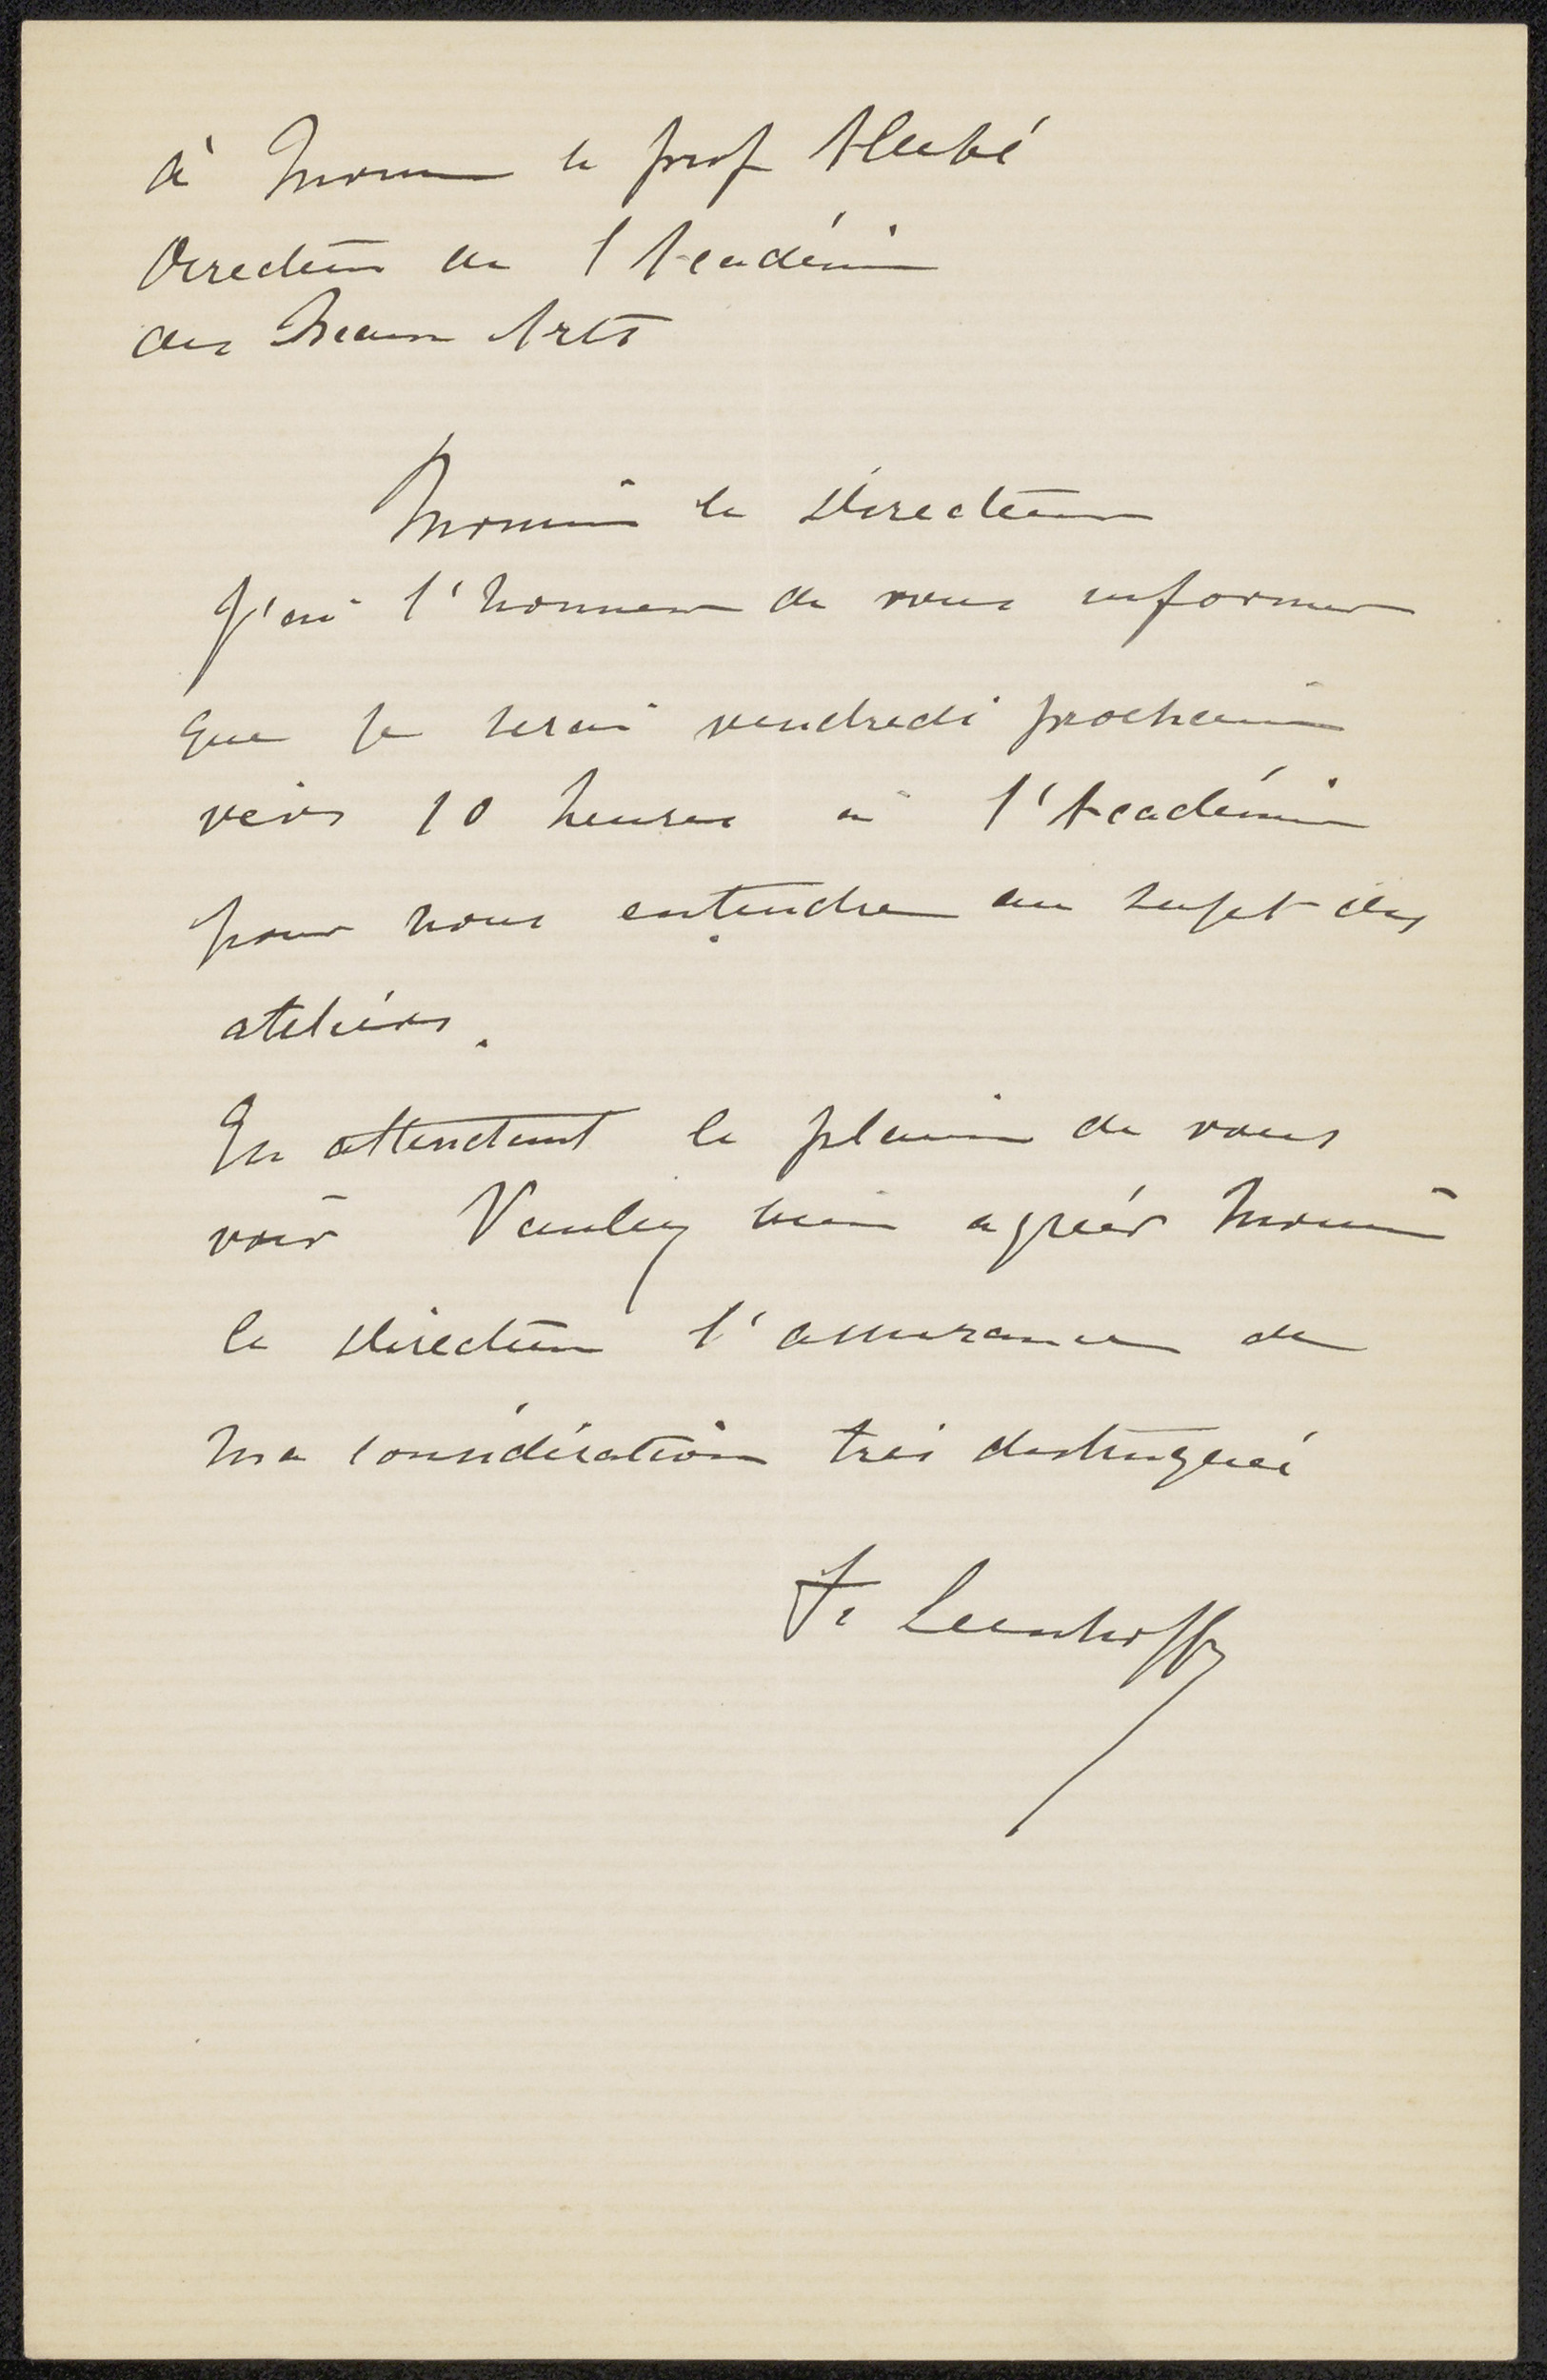 à Monsieur le prof Allebé
Directeur de l Académie
des Beaux Arts
Monsieur le Directeur
J'ai l'honneur de vous informer
que je serai vendredi prochain
vers 10 heures à l'Académie
pour nous entendre au sujet des
ateliérs.
En attendant le plaisir de vous
voir Veuley bien agréér Monsieur
le Directeur l'assurance de
ma considération trés distinguéé
F. Leenhoff